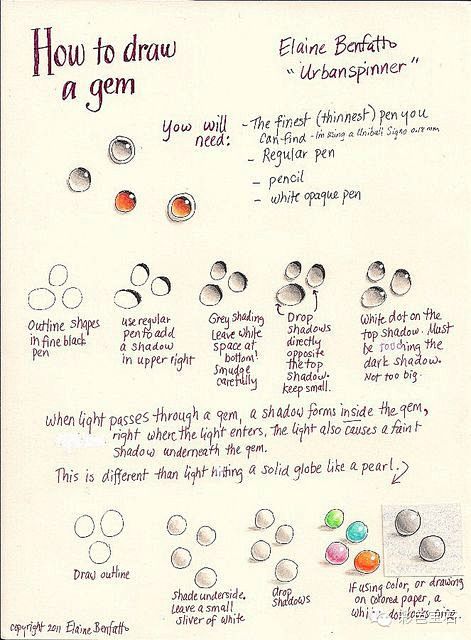 How to draw
a gem
Elaine Benfatto
"Urbanspinner"
You will
need:
- The finest (thinnest) pen you
can find - I'm using a Uniball Signo 0.18 mm
- Regular pen
- pencil
- white opaque pen
Outline shapes
in fine black
pen
use regular
pen to add
a shadow
in upper right
Grey shading
Leave white
space at
bottom!
Smudge
carefully
Drop
shadows
directly
opposite
the top
shadow.
keep small.
White dot on the
top shadow. Must
be touching the
dark shadow.
Not too big.
When light passes through a gem, a shadow forms inside the gem,
right where the light enters. The light also causes a faint
shadow underneath the gem.
This is different than light hitting a solid globe like a pearl.
Draw outline
Shade underside.
Leave a small
sliver of white
drop
shadows
If using color, or drawing
on colored paper, a
white dot looks nice
copyright 2011 Elaine Benfatto